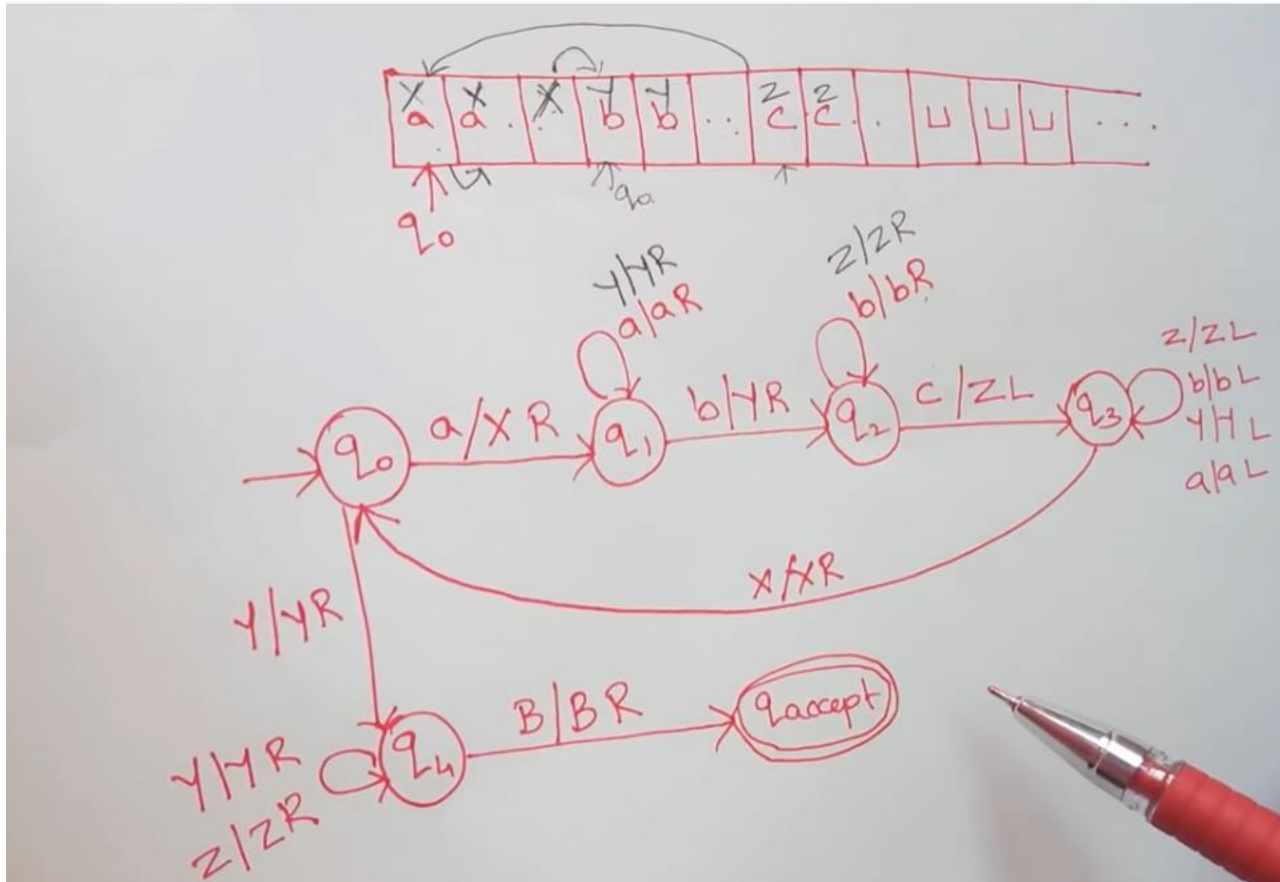 X X X Y Y Z Z
a a . . . b b . . c c . . ⊔ ⊔ ⊔ . . .
q₀ q₀
Y/YR Z/ZR
a/aR b/bR
Z/ZL
b/bL
Y/YL
a/aL
q₀ a/XR q₁ b/YR q₂ C/ZL q₃
X/XR
Y/YR
q₄ B/BR qaccept
Y/YR
Z/ZR